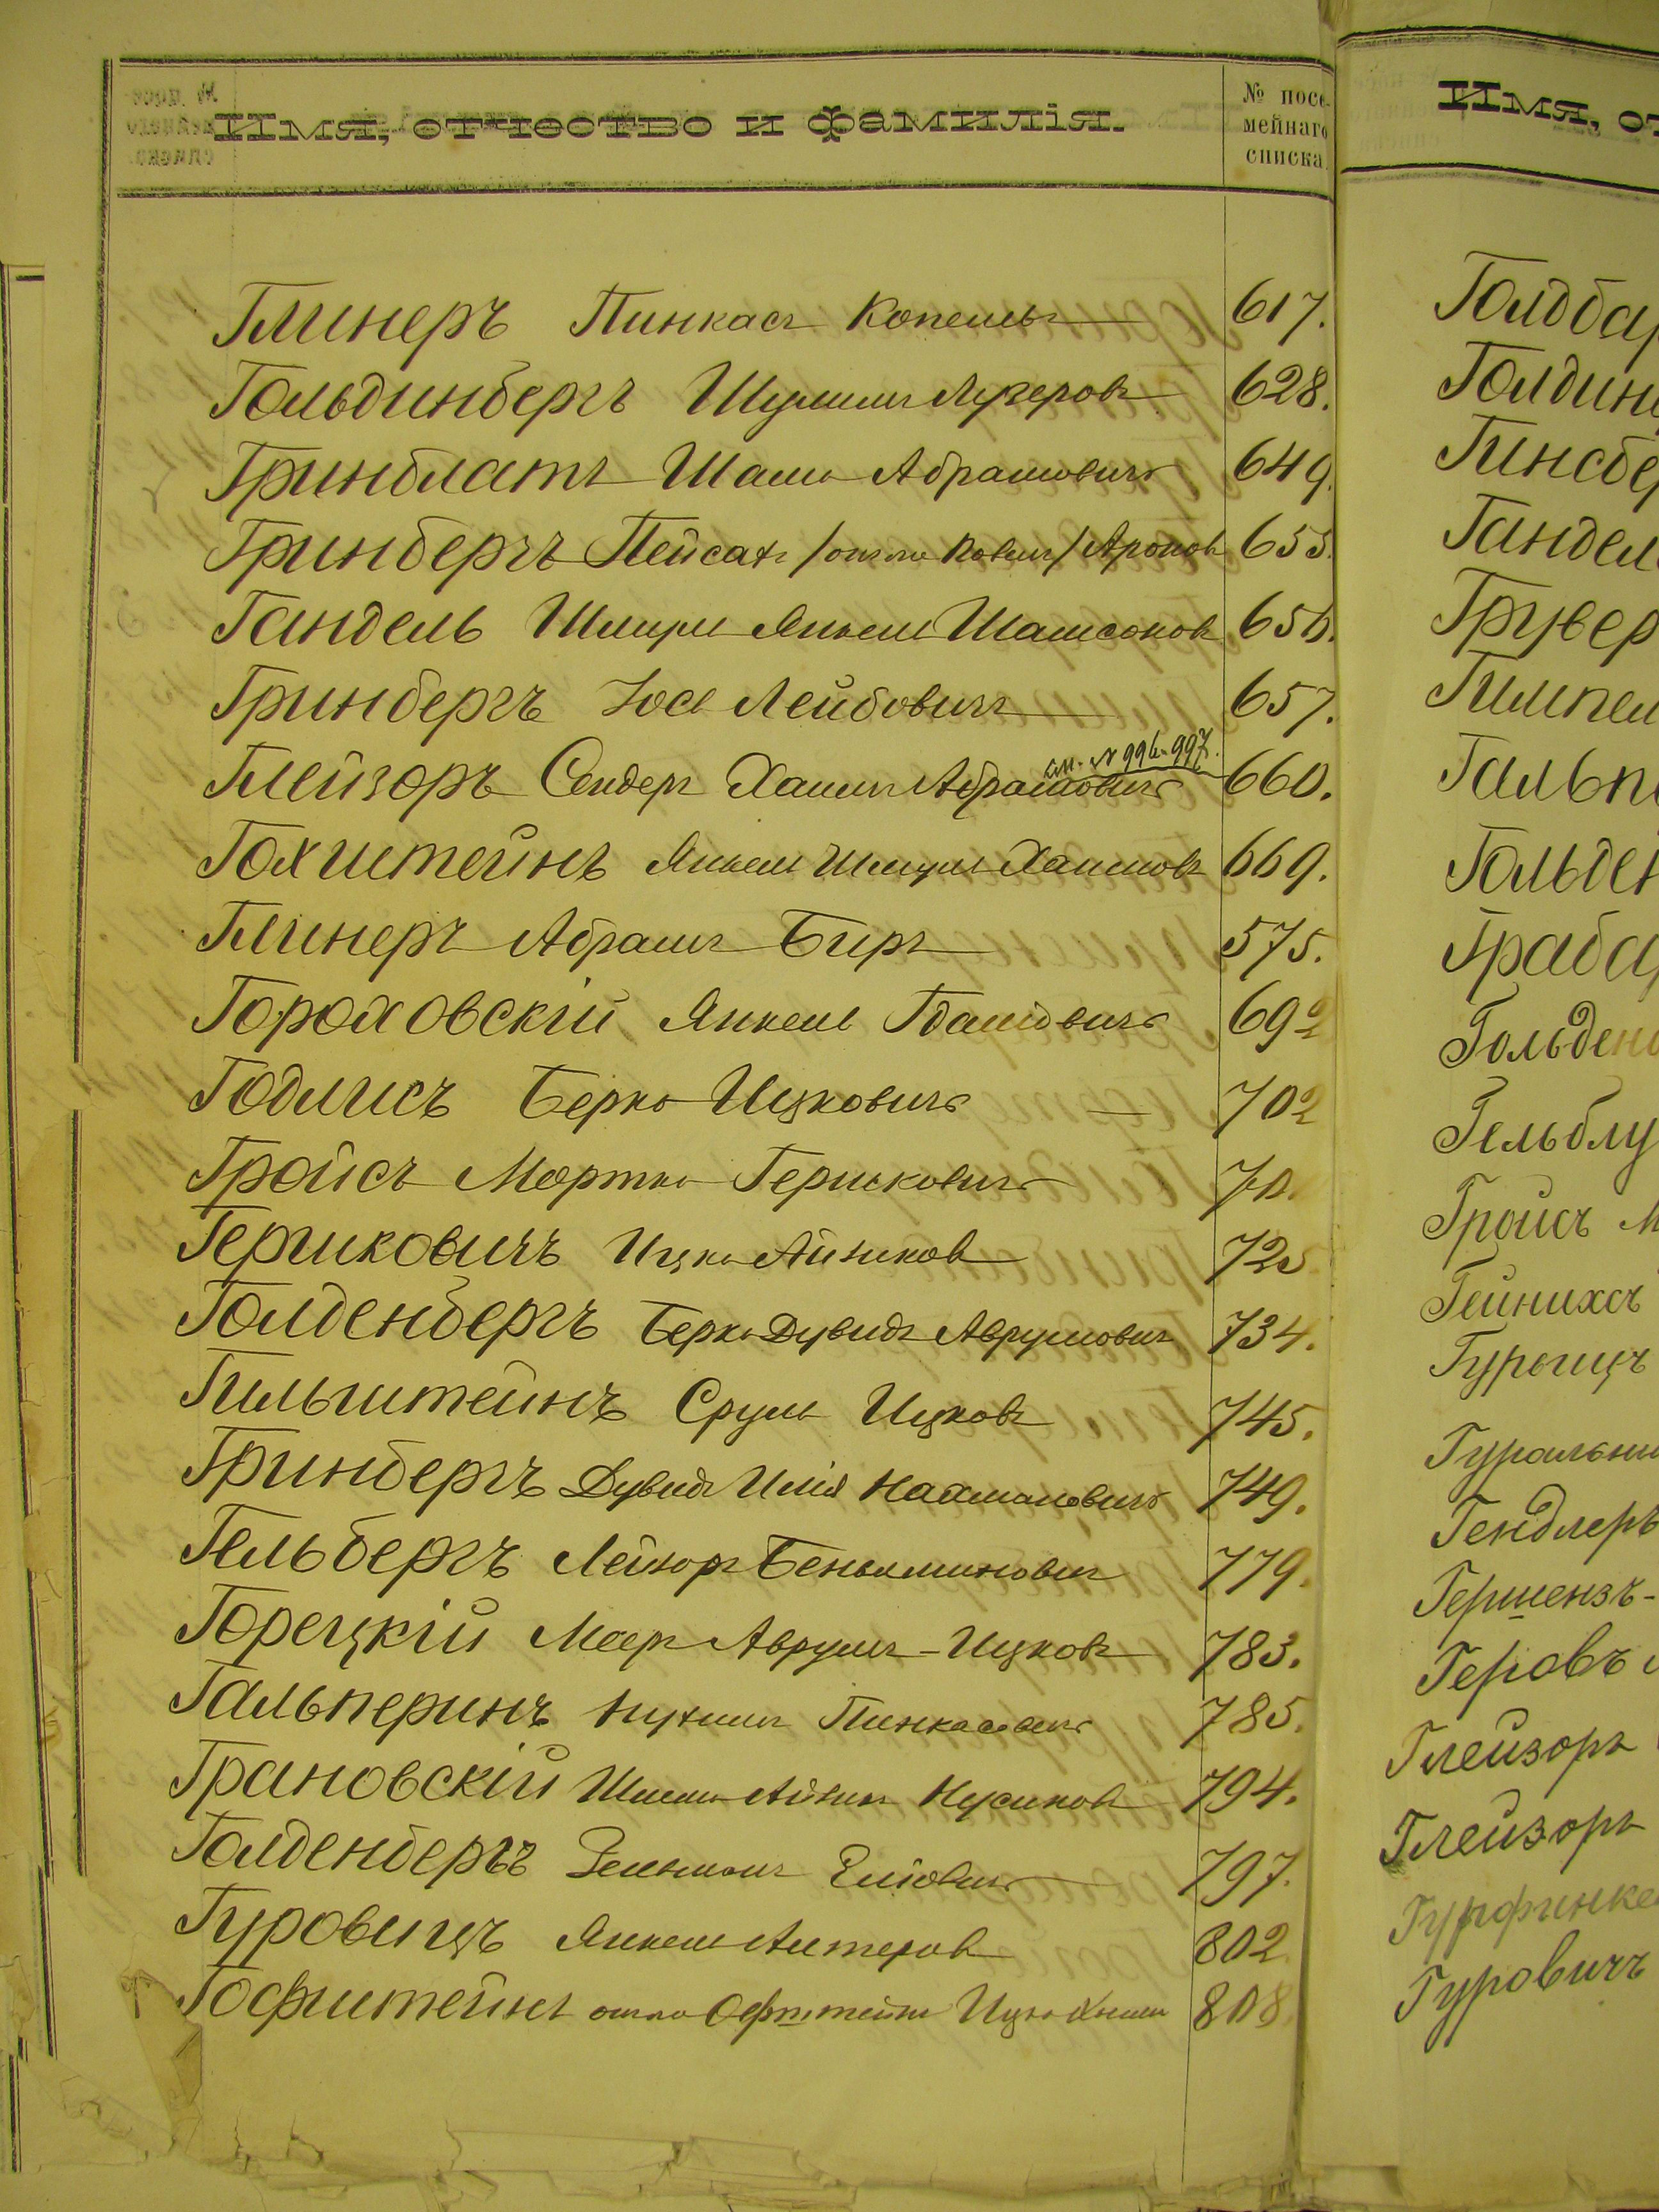 Имя, отчество и фамилія.
№ посе-
мейнаго
списка.
Глинеръ Пинкасъ Копелевъ 617.
Гольдинбергъ Шулимъ Лузеровъ 628.
Гринблатъ Шама Абрамовичъ 649.
Гринбергъ Пейсахъ /онъ же / Ароновъ 655.
Гандель Шмуль Янкель Шамсоновъ 656.
Гринбергъ Іось Лейбовичъ 657.
см. № 996-997.
Глейзоръ Сендеръ Хаимъ Абрамовичъ 660.
Гохштейнъ Янкель Шмуль Хаимовъ 669.
Глинеръ Абрамъ Беръ 575.
Гороховскій Янкель 692
Годлисъ Берко Ицковичъ 702
Гройсъ Мортко Гершковичъ 70
Гершковичъ Ицко Айзиковъ 725
Голденбергъ Берко Дувидъ Аврумовичъ 734.
Гильштейнъ Сруль Ицковъ 745.
Гринбергъ Дувидъ Илія Нахмановичъ 749.
Гельбергъ Лейзоръ Беньяминовичъ 779.
Горецкій Меер Аврумъ-Ицковъ 783.
Гальперинъ Нухимъ Пинкасовичъ 785.
Грановскій Шлема Айзикъ Нусиновъ 794.
Голденбергъ Зельманъ Еліовичъ 797.
Гуровицъ Янкель Алтеровъ 802
Гофштейнъ онъ же Офштейнъ Ицко 808
Имя, от
Голдба
Голдин
Гинсбе
Гандел
Грувер
Гимпел
Гальпе
Гольден
Граба
Гольден
Гельблу
Гройсъ М
Гейнихсъ
Гурвицъ
Гуральни
Гендлеръ
Гершензъ-
Геровъ
Глейзоръ
Глейзоръ
Гурфинке
Гуровичъ